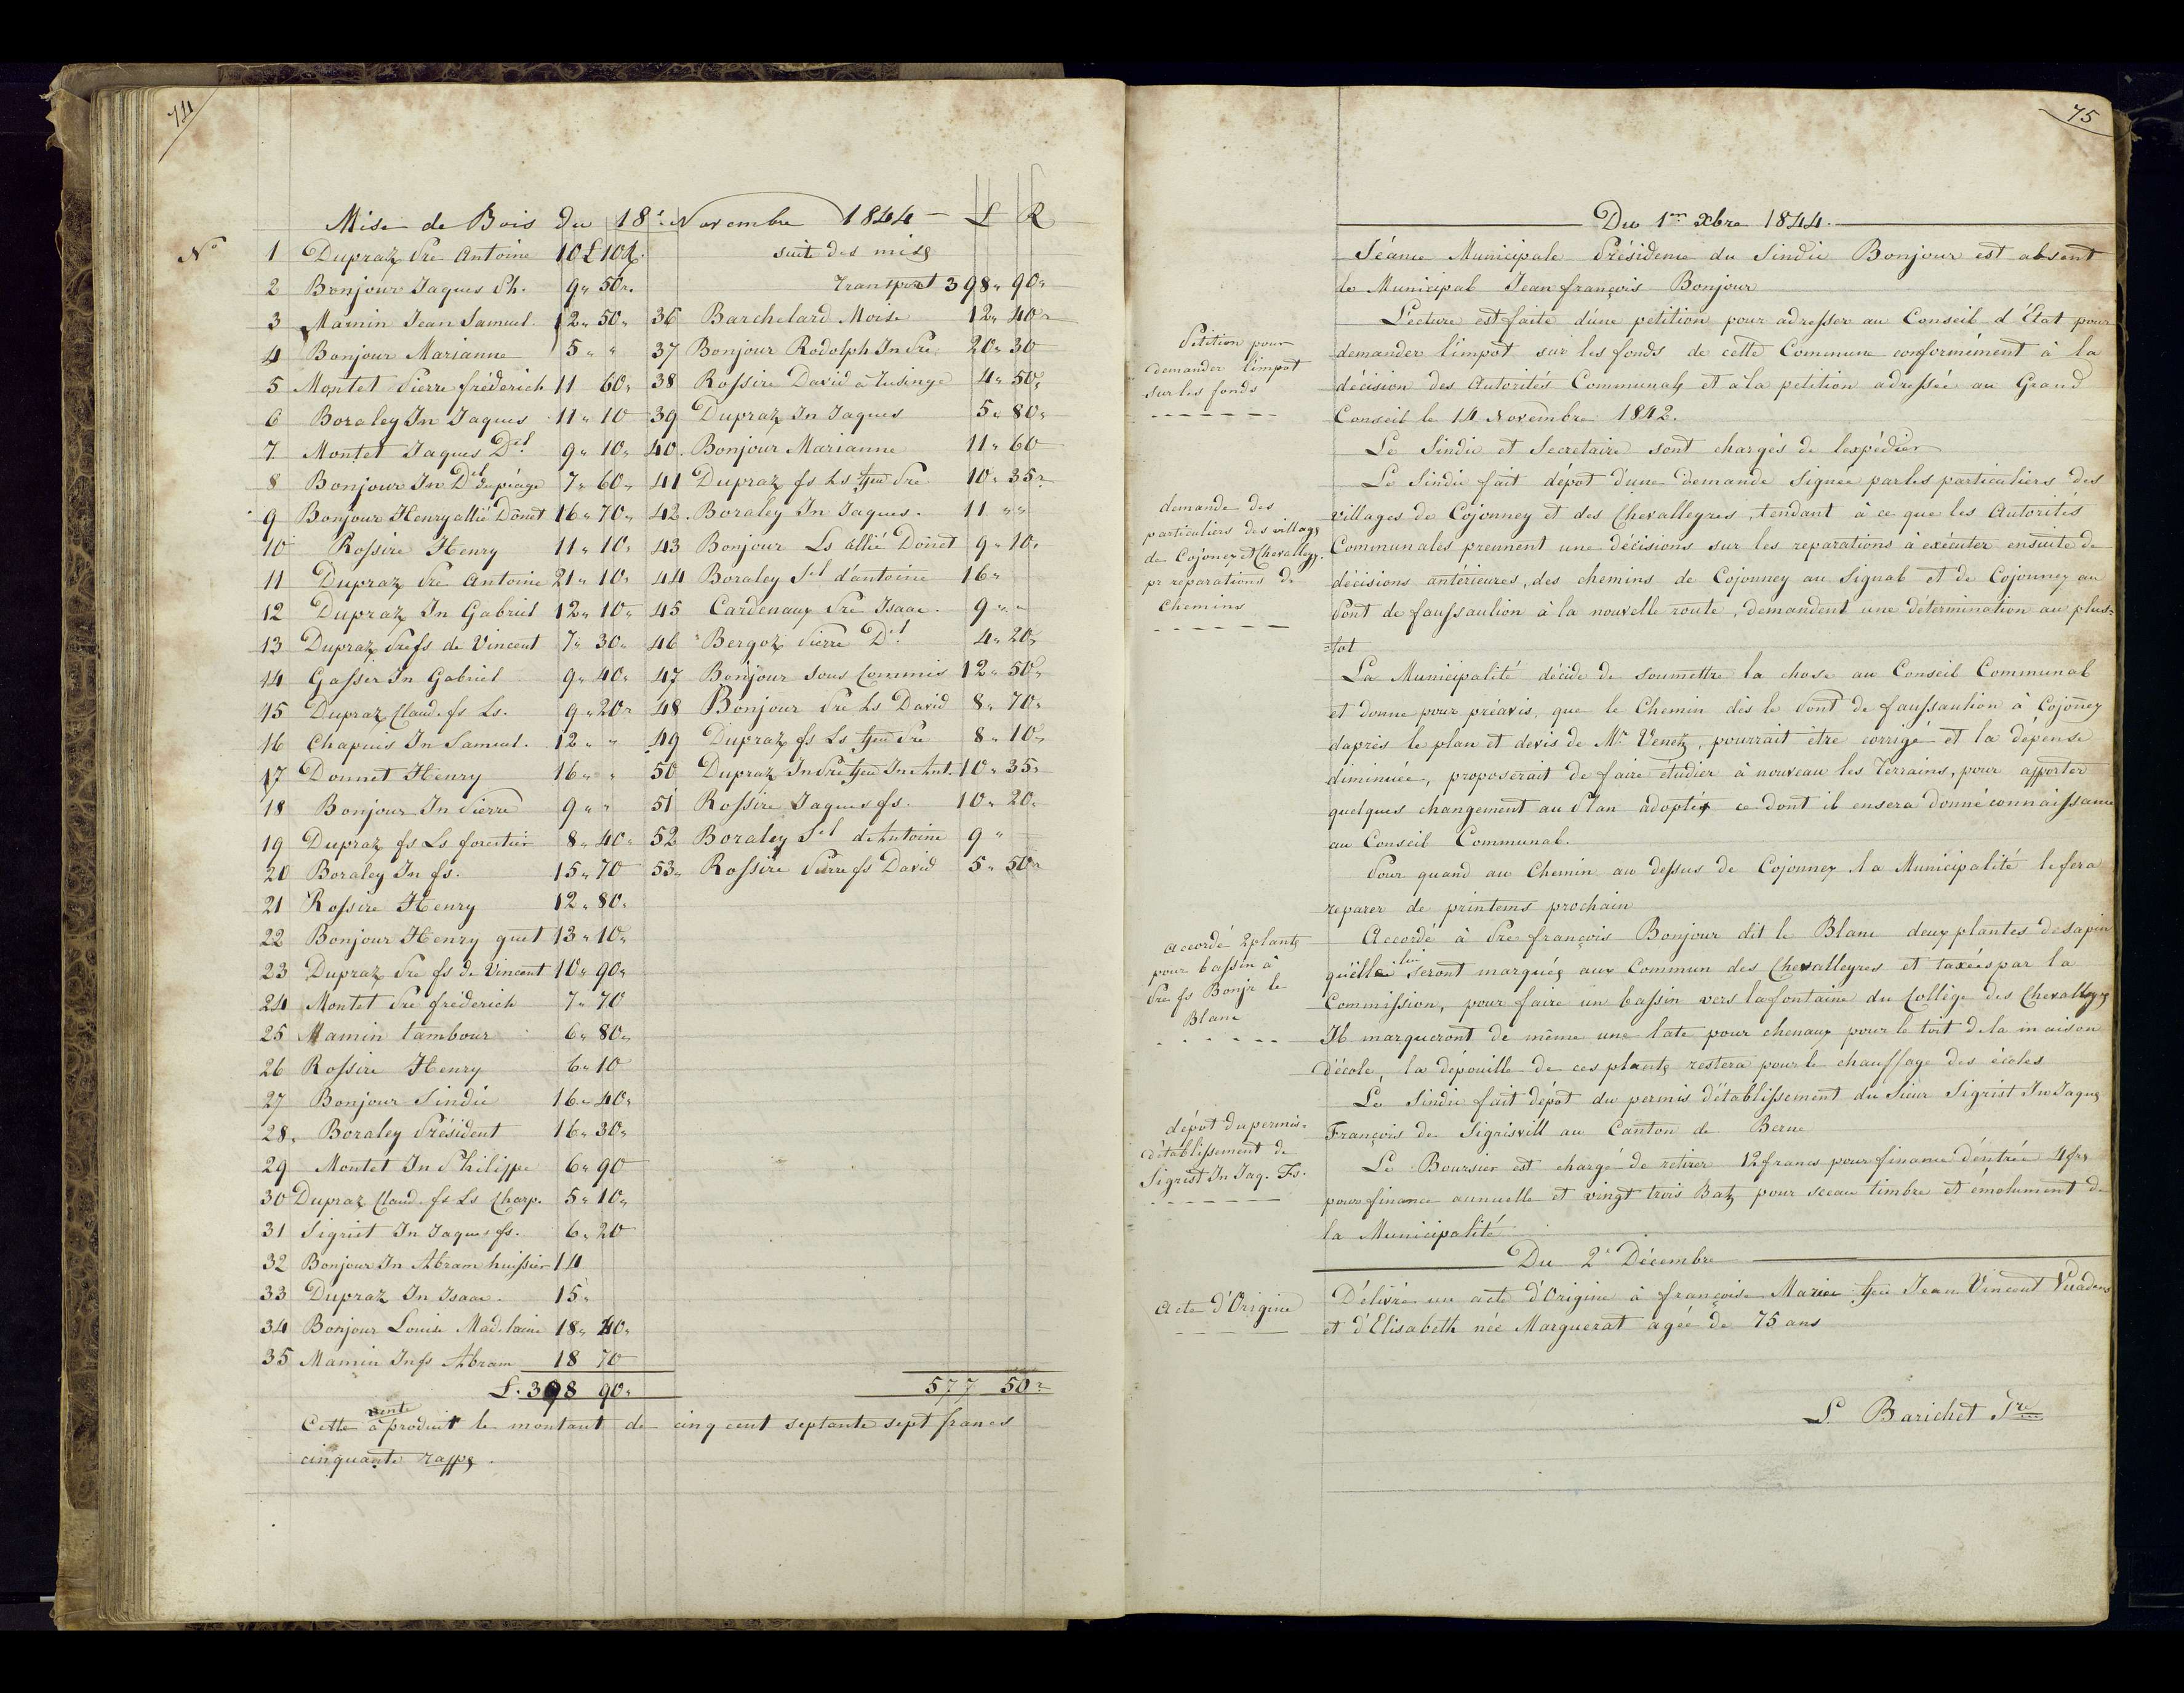 74
Mise de Bois du 18e Novembre 1844 — L R
No 1 Dupraz Pre Antoine 10 L 10 R.
2 Bonjour Jaques Ph. 9 " 50 "
3 Mamin Jean Samuel. 12 " 50 "
4 Bonjour Marianne 5 " "
5 Montet Pierre fréderich 11 60 "
6 Boraley Jn Jaques 11 " 10
7 Montet Jaques Del 9 " 10 "
8 Bonjour Jn Dl dupéage 7 " 60 "
9 Bonjour Henry allié Donet 16 " 70 "
10 Rossire Henry 11 " 10 "
11 Dupraz Pre Antoine 21 " 10 "
12 Dupraz Jn Gabriel 12 " 10 "
13 Dupraz Pre fs de Vincent 7 " 30 "
14 Gasser Jn Gabriel 9 " 40 "
15 Dupraz Claud. fs Ls. 9 " 20 "
16 Chapuis Jn Samuel. 12 " "
17 Donnet Henry 16 " "
18 Bonjour Jn Pierre 9 " "
19 Dupraz fs Ls forestier 8 " 40 "
20 Boraley Jn fs. 15 " 70
21 Rossire Henry 12 " 80 "
22 Bonjour Henry guet 13 " 10 "
23 Dupraz Pre fs de Vincent 10 " 90 "
24 Montet Pre fréderich 7 " 70
25 Mamin tambour 6 " 80 "
26 Rossire Henry 6 " 10
27 Bonjour Sindic 16 " 40 "
28 " Boraley Président 16 " 30 "
29 Montet Jn Philippe 6 " 90
30 Dupraz Claud. fs Ls Charp. 5 " 10 "
31 Sigrist Jn Jaques fs. 6 " 20
32 Bonjour Jn Abram huissier 14
33 Dupraz Jn Isaac. 15 "
34 Bonjour Louise Madelaine 18 " 40 "
35 Mamin Jn fs Abram 18 70
L. 398 90 "
suite des mises
Transport 398 " 90 "
36 Barchelard Moïse 12 " 40 "
37 Bonjour Rodolph Jn Pre 20 " 30
38 Rossire David à Tusinge 4 " 50 "
39 Dupraz Jn Jaques 5 " 80 "
40. Bonjour Marianne 11 " 60
41 Dupraz fs Ls feu Pre 10 " 35 "
42. Boraley Jn Jaques. 11 " "
43 Bonjour Ls allié Donet 9 " 10 "
44 Boraley Sel d'antoine 16 "
45 Cardenaux Pre Isaac. 9 " "
46 Bergoz Pierre Dl 4 " 20 "
47 Bonjour sous Commis 12 " 50 "
48 Bonjour Pre Ls David 8 " 70 "
49 Dupraz fs Ls feu Pre 8 " 10 "
50 Dupraz Jn Pre feu Jn Ant. 10 " 35 "
51 Rossire Jaques fs. 10 " 20 "
52 Boraley Sel de Antoine 9 "
53 " Rossire Pierre fs David 5 " 50 "
577 50 "
Cette vente à produit le montant de cinq cent septante sept francs
cinquante rapps.
75
Du 1er Xbre 1844.
Séance Municipale Présidence du Sindic Bonjour est absent
le Municipal Jean françois Bonjour
Pétition pour
demander l'impot
sur les fonds
Lecture est faite d'une pétition pour adresser au Conseil d'État pour
demander l'impot sur les fonds de cette Commune conformément à la
décision des Autorités Communales et à la petition adressée au Grand
Conseil le 14 Novembre 1842.
Le Sindic et Secretaire sont chargés de l'expédier
demande des
particuliers des villages
de Cojonex et Chevallèg.
pr reparations de
chemins
Le Sindic fait dépot d'une demande signée par les particuliers des
villages de Cojonney et des Chevalleyres, tendant à ce que les Autorités
Communales prennent une décisions sur les reparations à exécuter ensuite de
décisions antérieures, des chemins de Cojonney au Signal et de Cojonney au
Pont de faussaulion à la nouvelle route, demandent une détermination au plus=
=tot
La Municipalité décide de soumettre la chose au Conseil Communal
et donne pour préavis, que le Chemin dès le Pont de faussaulion à Cojoney
d'après le plan et devis de Mr Venetz, pourrait être corrigé et la dépense
diminuée, proposerait de faire étudier à nouveau les Terrains, pour apporter
quelques changement au Plan adopté, ce dont il en sera donné connaissance
au Conseil Communal.
Pour quand au Chemin au dessus de Cojonney la Municipalité le fera
reparer de printems prochain
Accordé 2 plantes
pour bassin à
Pre fs Bonjr le
Blanc
Accordé à Pre françois Bonjour dit le Blanc deux plantes de sapin
quelle lui seront marquées aux Commun des Chevalleyres et taxées par la
Commission, pour faire un bassin vers la fontaine du Collège des Chevalleyres
Il marqueront de même une late pour chenaux pour le toit de la maison
d'école, la dépouille de ces plantes restera pour le chauffage des écoles
dépot du permis=
d'établissement de
Sigrist Jn Jaq. Fs.
Le Sindic fait dépôt du permis d'établissement du Sieur Sigrist Jn Jaques
François de Sigrisvill au Canton de Berne
Le Boursier est chargé de retirer 12 francs pour finance d'entrée 4 frs
pour finance annuelle et vingt trois Batz pour sceau timbre et émolument de
la Municipalité
Du 2e Décembre
Acte d'Origine
Délivré un acte d'Origine à françoise Marie feu Jean Vincent Vuadens
et d'Elisabeth née Marguerat agée de 75 ans
L Barichet Sre